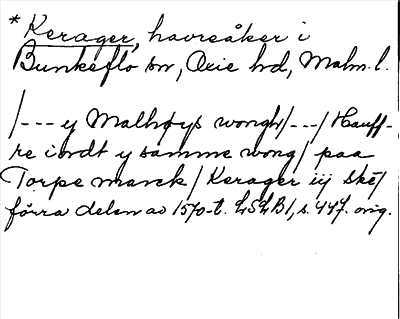 * Kerager, havreåker i
Bunkeflo sn, Oxie hd, Malm. l.
/--- y Malhøys wongh/---/ Hauff-
re iordt y samme wong/ paa
Torpe marck/ Kerager iij ske/
förra delen av 1570-t. LSLB1, s. 447. orig.